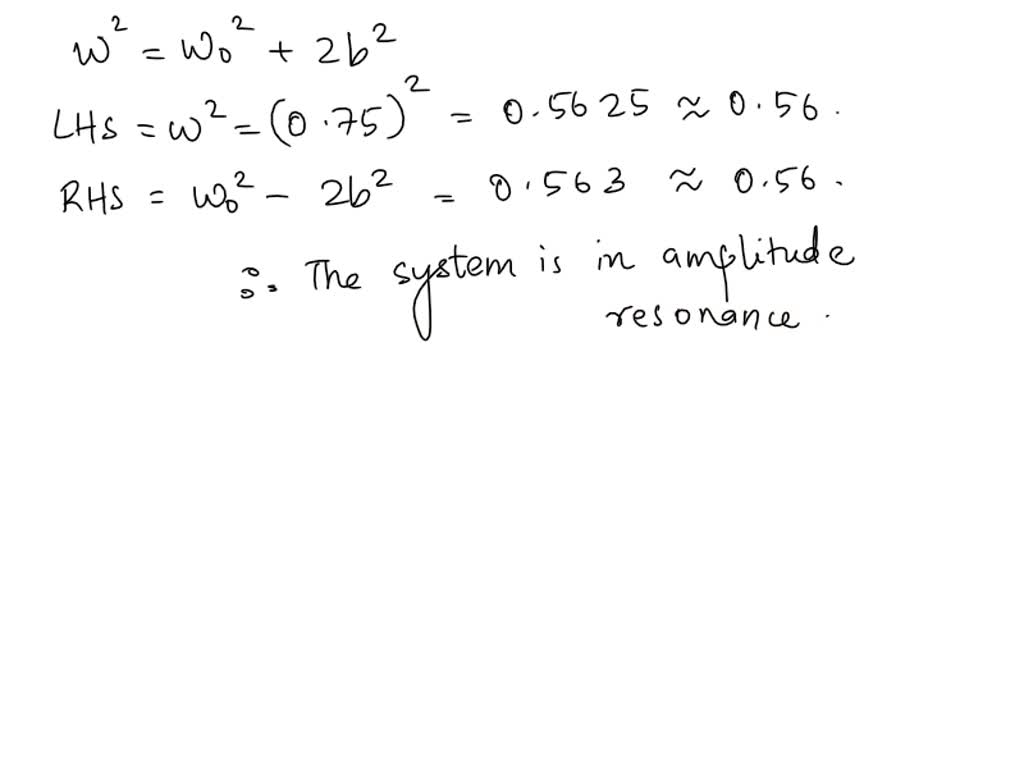 w² = w₀² + 2b²
LHS = w² = (0.75)² = 0.5625 ≈ 0.56.
RHS = w₀² - 2b² = 0.563 ≈ 0.56.
∴ The system is in amplitude
resonance.